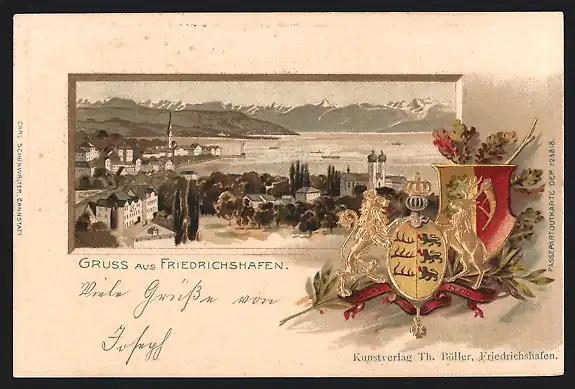 CARL SCHÖNWALTER, CANNSTATT
GRUSS AUS FRIEDRICHSHAFEN.
Viele Grüße von
Joseph
PASSEPARTOUTKARTE DEP. 12318.
Kunstverlag Th. Böller, Friedrichshafen.